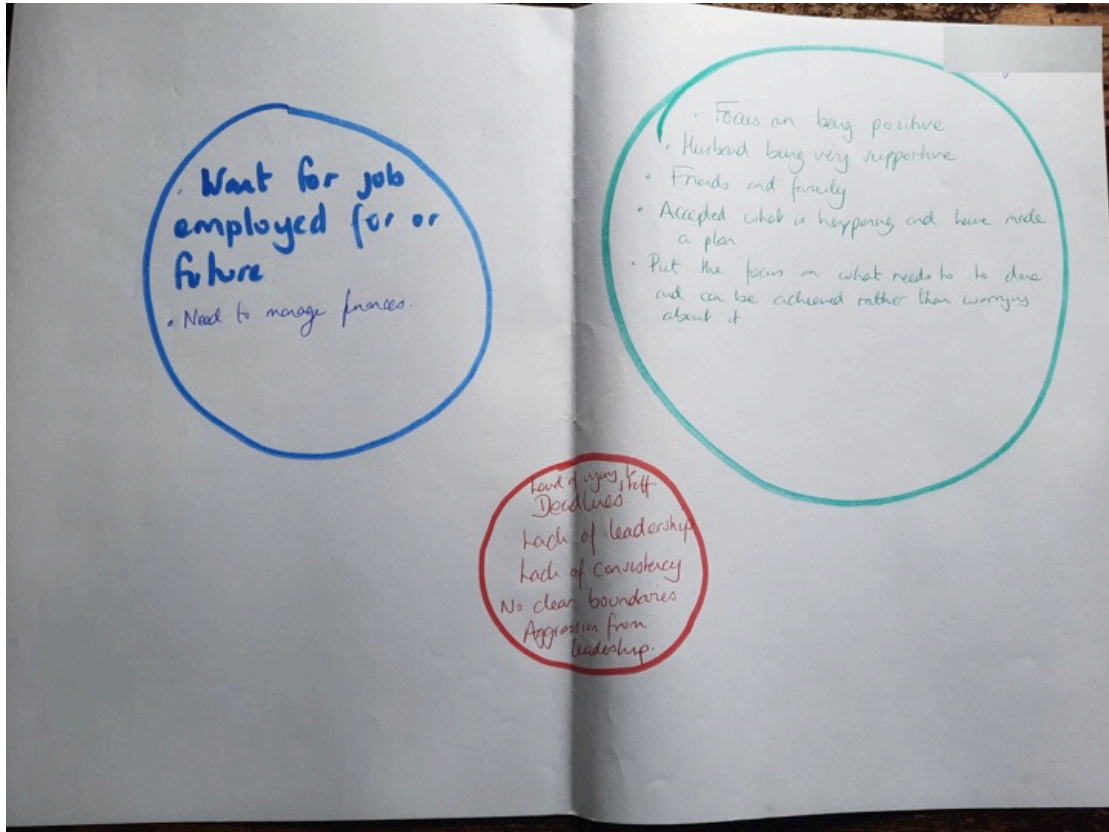 • Want for job
employed for or
future
• Need to manage finances.
• Focus on being positive
• Husband being very supportive
• Friends and family
• Accepted what is happening and have made
a plan.
• Put the focus on what needs to to done
and can be achieved rather than worrying
about it
Level of to staff
Deadlines
Lack of leadership
Lack of Consistency
No clear boundaries
Aggression from
leadership.